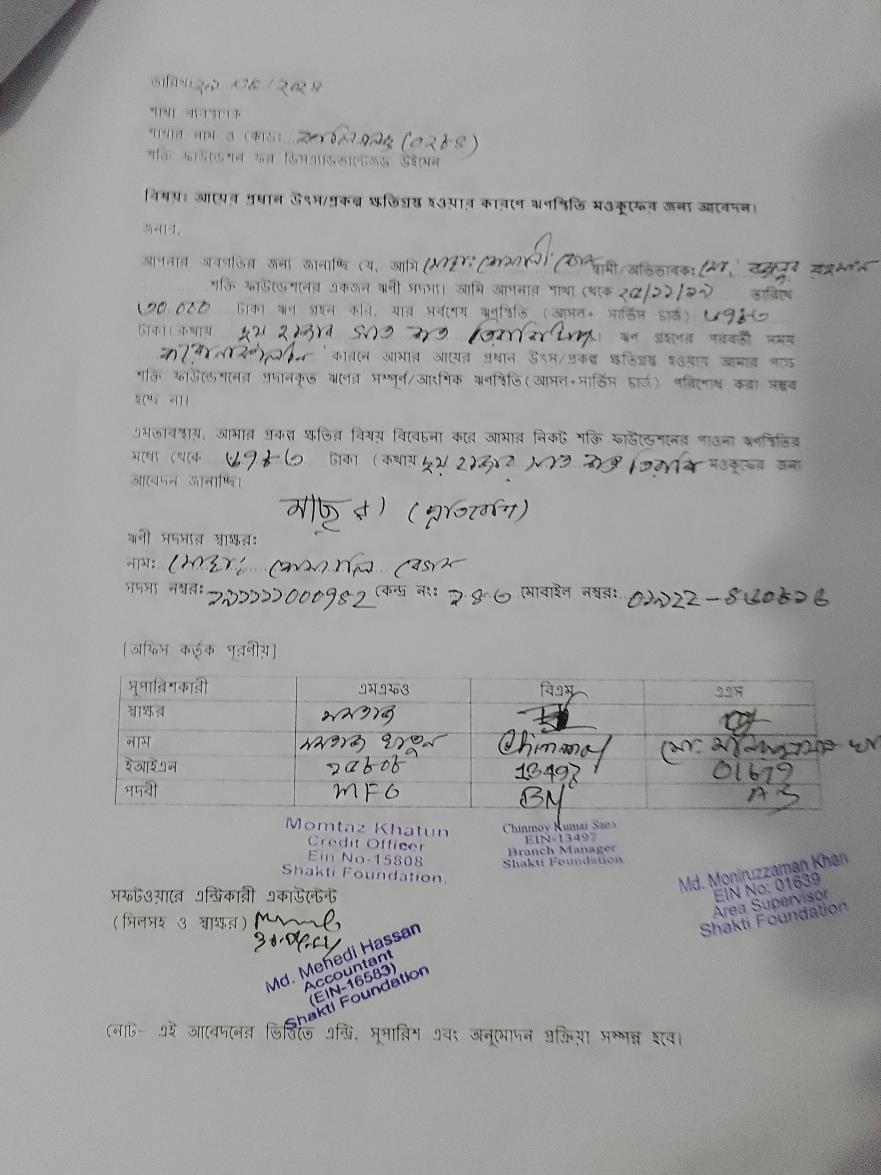 তারিখঃ
শাখা ব্যবস্থাপক
শাখার নাম ও কোডঃ (০২৮৪)
শক্তি ফাউন্ডেশন ফর ডিসএ্যাডভান্টেজড উইমেন
বিষয়ঃ আয়ের প্রধান উৎস/প্রকল্প ক্ষতিগ্রস্থ হওয়ার কারণে ঋণস্থিতি মওকুফের জন্য আবেদন।
জনাব,
আপনার অবগতির জন্য জানাচ্ছি যে, আমি মোছাঃ স্বামী/অভিভাবকঃ মো,
শক্তি ফাউন্ডেশনের একজন ঋনী সদস্য। আমি আপনার শাখা থেকে তারিখে
৩০.০০০ টাকা ঋণ গ্রহন করি, যার সর্বশেষ ঋণস্থিতি (আসল+ সার্ভিস চার্জ) ৬৭৮৩
টাকা (কথায় ছয় হাজার সাত শত তিরাশি ঋণ গ্রহণের পরবর্তী সময়
কারণে আমার আয়ের প্রধান উৎস/প্রকল্প ক্ষতিগ্রস্থ হওয়ায় আমার পক্ষে
শক্তি ফাউন্ডেশনের প্রদানকৃত ঋণের সম্পূর্ণ/আংশিক ঋণস্থিতি (আসল+সার্ভিস চার্জ) পরিশোধ করা সম্ভব
হচ্ছে না।
এমতাবস্থায়, আমার প্রকল্প ক্ষতির বিষয় বিবেচনা করে আমার নিকট শক্তি ফাউন্ডেশনের পাওনা ঋণস্থিতির
মধ্যে থেকে ৬৭৮৩ টাকা (কথায় ছয় হাজার সাত শত তিরাশি মওকুফের জন্য
আবেদন জানাচ্ছি।
(প্রতিবেশি)
ঋনী সদস্যর স্বাক্ষরঃ
নামঃ মোছাঃ বেগম
সদস্য নম্বরঃ কেন্দ্র নংঃ মোবাইল নম্বরঃ
[অফিস কর্তৃক পূরণীয়]
সুপারিশকারী এমএফও বিএম এএস
স্বাক্ষর মমতাজ
নাম মমতাজ খাতুন Chinmoy মো. মনিরুজ্জামান খান
ইআইএন ১৫৮০৮ 13497 01639
পদবী MFO BM AS
Momtaz Khatun
Credit Officer
Ein No-15808
Shakti Foundation.
Chinmoy Kumar Sana
EIN-13497
Branch Manager
Shakti Foundation
Md. Moniruzzaman Khan
EIN No: 01639
Area Supervisor
Shakti Foundation
সফটওয়ারে এন্ট্রিকারী একাউন্টেন্ট
(সিলসহ ও স্বাক্ষর)
Md. Mehedi Hassan
Accountant
(EIN-16583)
Shakti Foundation
নোট- এই আবেদনের ভিত্তিতে এন্ট্রি, সুপারিশ এবং অনুমোদন প্রক্রিয়া সম্পন্ন হবে।